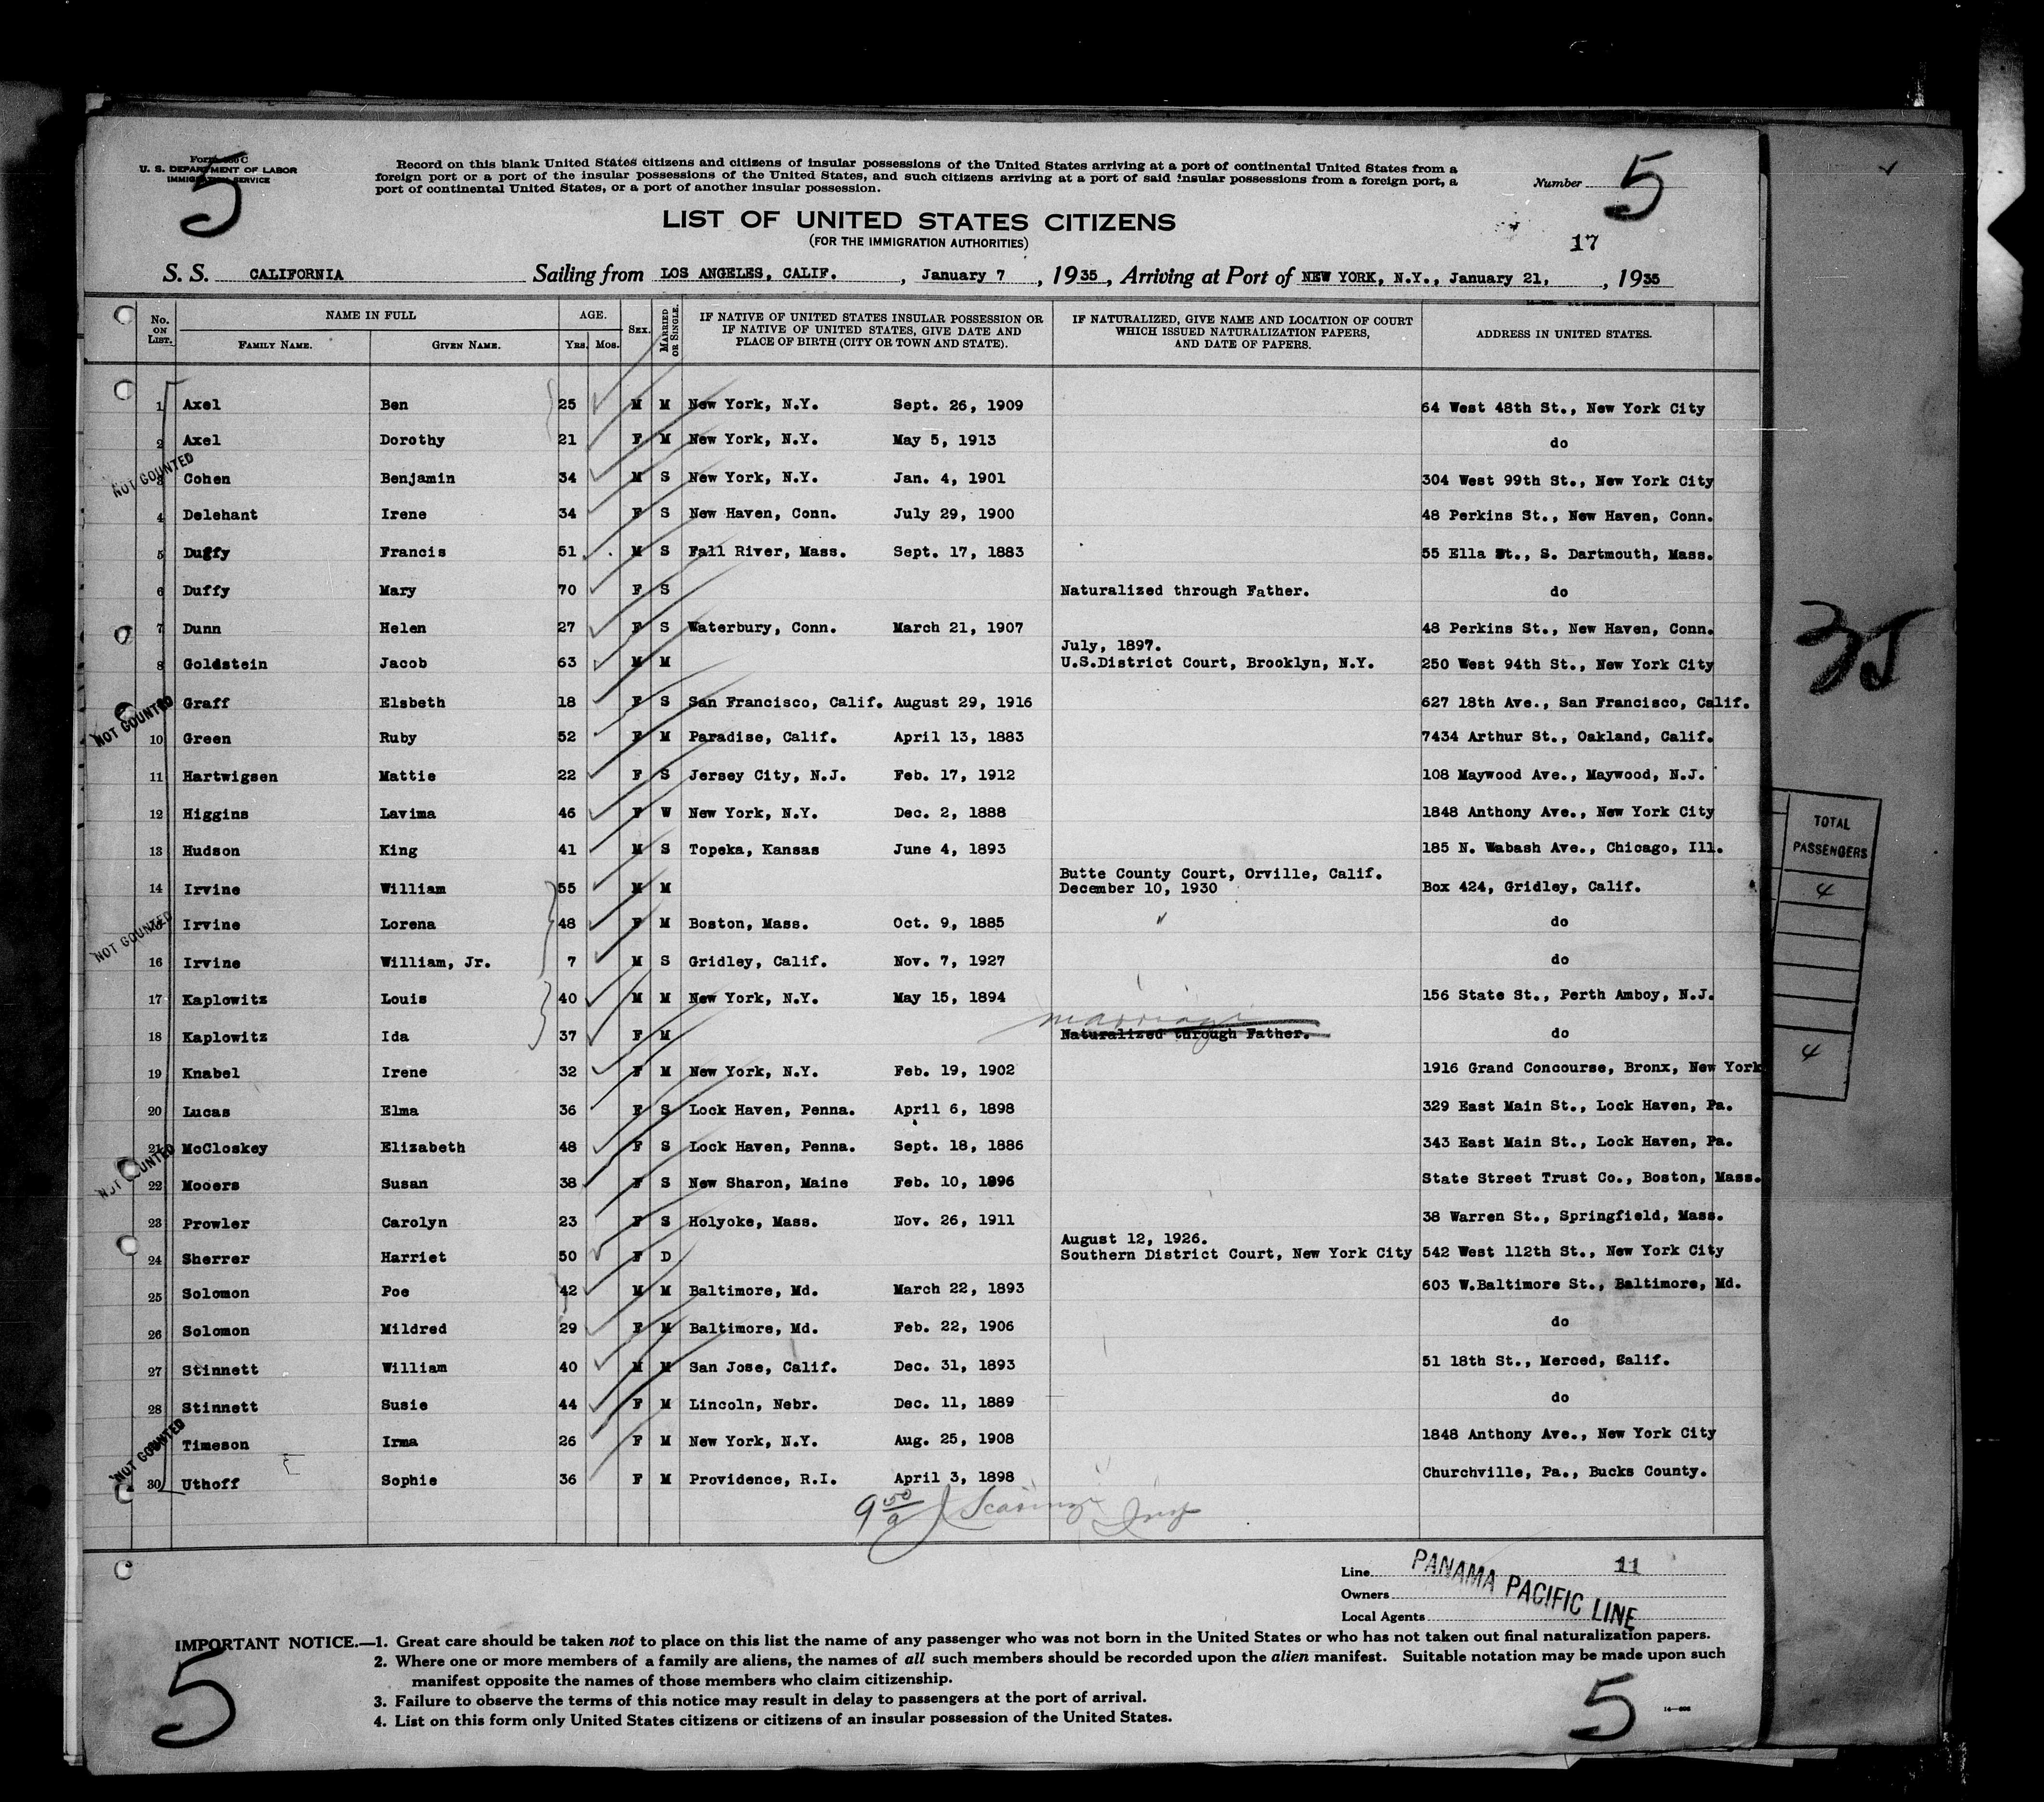 Form 630 C
U. S. DEPARTMENT OF LABOR
IMMIGRATION SERVICE
5
Record on this blank United States citizens and citizens of insular possessions of the United States arriving at a port of continental United States from a
foreign port or a port of the insular possessions of the United States, and such citizens arriving at a port of said insular possessions from a foreign port, a
port of continental United States, or a port of another insular possession.
Number 5
LIST OF UNITED STATES CITIZENS
(FOR THE IMMIGRATION AUTHORITIES)
17
S. S. CALIFORNIA Sailing from LOS ANGELES, CALIF. , January 7 , 1935, Arriving at Port of NEW YORK, N.Y., January 21, , 1935
No. ON LIST. NAME IN FULL FAMILY NAME. GIVEN NAME. AGE. YRS. MOS. SEX. MARRIED OR SINGLE. IF NATIVE OF UNITED STATES INSULAR POSSESSION OR IF NATIVE OF UNITED STATES, GIVE DATE AND PLACE OF BIRTH (CITY OR TOWN AND STATE). IF NATURALIZED, GIVE NAME AND LOCATION OF COURT WHICH ISSUED NATURALIZATION PAPERS, AND DATE OF PAPERS. ADDRESS IN UNITED STATES.
1 Axel Ben 25 M M New York, N.Y. Sept. 26, 1909 64 West 48th St., New York City
2 Axel Dorothy 21 F M New York, N.Y. May 5, 1913 do
NOT COUNTED
3 Cohen Benjamin 34 M S New York, N.Y. Jan. 4, 1901 304 West 99th St., New York City
4 Delehant Irene 34 F S New Haven, Conn. July 29, 1900 48 Perkins St., New Haven, Conn.
5 Duffy Francis 51 M S Fall River, Mass. Sept. 17, 1883 55 Ella St., S. Dartmouth, Mass.
6 Duffy Mary 70 F S Naturalized through Father. do
7 Dunn Helen 27 F S Waterbury, Conn. March 21, 1907 48 Perkins St., New Haven, Conn.
July, 1897.
8 Goldstein Jacob 63 M M U.S.District Court, Brooklyn, N.Y. 250 West 94th St., New York City
NOT COUNTED
Graff Elsbeth 18 F S San Francisco, Calif. August 29, 1916 627 18th Ave., San Francisco, Calif.
10 Green Ruby 52 F M Paradise, Calif. April 13, 1883 7434 Arthur St., Oakland, Calif.
11 Hartwigsen Mattie 22 F S Jersey City, N.J. Feb. 17, 1912 108 Maywood Ave., Maywood, N.J.
12 Higgins Lavima 46 F W New York, N.Y. Dec. 2, 1888 1848 Anthony Ave., New York City
13 Hudson King 41 M S Topeka, Kansas June 4, 1893 185 N. Wabash Ave., Chicago, Ill.
Butte County Court, Orville, Calif.
14 Irvine William 55 M M December 10, 1930 Box 424, Gridley, Calif.
NOT COUNTED
Irvine Lorena 48 F M Boston, Mass. Oct. 9, 1885 " do
16 Irvine William, Jr. 7 M S Gridley, Calif. Nov. 7, 1927 do
17 Kaplowitz Louis 40 M M New York, N.Y. May 15, 1894 156 State St., Perth Amboy, N.J.
marriage
18 Kaplowitz Ida 37 F M Naturalized through Father. do
19 Knabel Irene 32 F M New York, N.Y. Feb. 19, 1902 1916 Grand Concourse, Bronx, New York
20 Lucas Elma 36 F S Lock Haven, Penna. April 6, 1898 329 East Main St., Lock Haven, Pa.
21 McCloskey Elizabeth 48 F S Lock Haven, Penna. Sept. 18, 1886 343 East Main St., Lock Haven, Pa.
NOT COUNTED
22 Mooers Susan 38 F S New Sharon, Maine Feb. 10, 1896 State Street Trust Co., Boston, Mass.
23 Prowler Carolyn 23 F S Holyoke, Mass. Nov. 26, 1911 38 Warren St., Springfield, Mass.
August 12, 1926.
24 Sherrer Harriet 50 F D Southern District Court, New York City 542 West 112th St., New York City
25 Solomon Poe 42 M M Baltimore, Md. March 22, 1893 603 W.Baltimore St., Baltimore, Md.
26 Solomon Mildred 29 F M Baltimore, Md. Feb. 22, 1906 do
27 Stinnett William 40 M M San Jose, Calif. Dec. 31, 1893 51 18th St., Merced, Calif.
28 Stinnett Susie 44 F M Lincoln, Nebr. Dec. 11, 1889 do
NOT COUNTED
Timeson Irma 26 F M New York, N.Y. Aug. 25, 1908 1848 Anthony Ave., New York City
30 Uthoff Sophie 36 F M Providence, R.I. April 3, 1898 Churchville, Pa., Bucks County.
35
TOTAL
PASSENGERS
4
4
Line 11
Owners
Local Agents
PANAMA PACIFIC LINE
IMPORTANT NOTICE.—1. Great care should be taken not to place on this list the name of any passenger who was not born in the United States or who has not taken out final naturalization papers.
2. Where one or more members of a family are aliens, the names of all such members should be recorded upon the alien manifest. Suitable notation may be made upon such
manifest opposite the names of those members who claim citizenship.
3. Failure to observe the terms of this notice may result in delay to passengers at the port of arrival.
4. List on this form only United States citizens or citizens of an insular possession of the United States.
5
5